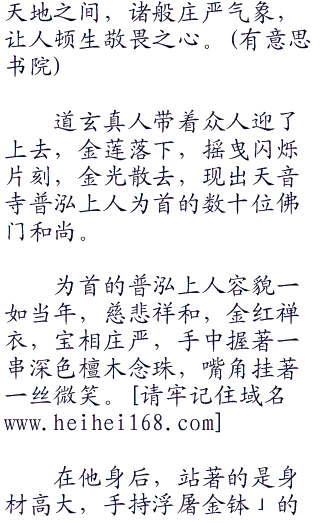 天地之间，诸般庄严气象，
让人顿生敬畏之心。(有意思
书院)
道玄真人带着众人迎了
上去，金莲落下，摇曳闪烁
片刻，金光散去，现出天音
寺普泓上人为首的数十位佛
门和尚。
为首的普泓上人容貌一
如当年，慈悲祥和，金红禅
衣，宝相庄严，手中握著一
串深色檀木念珠，嘴角挂著
一丝微笑。[请牢记住域名
www.heihei168.com]
在他身后，站著的是身
材高大，手持浮屠金钵」的